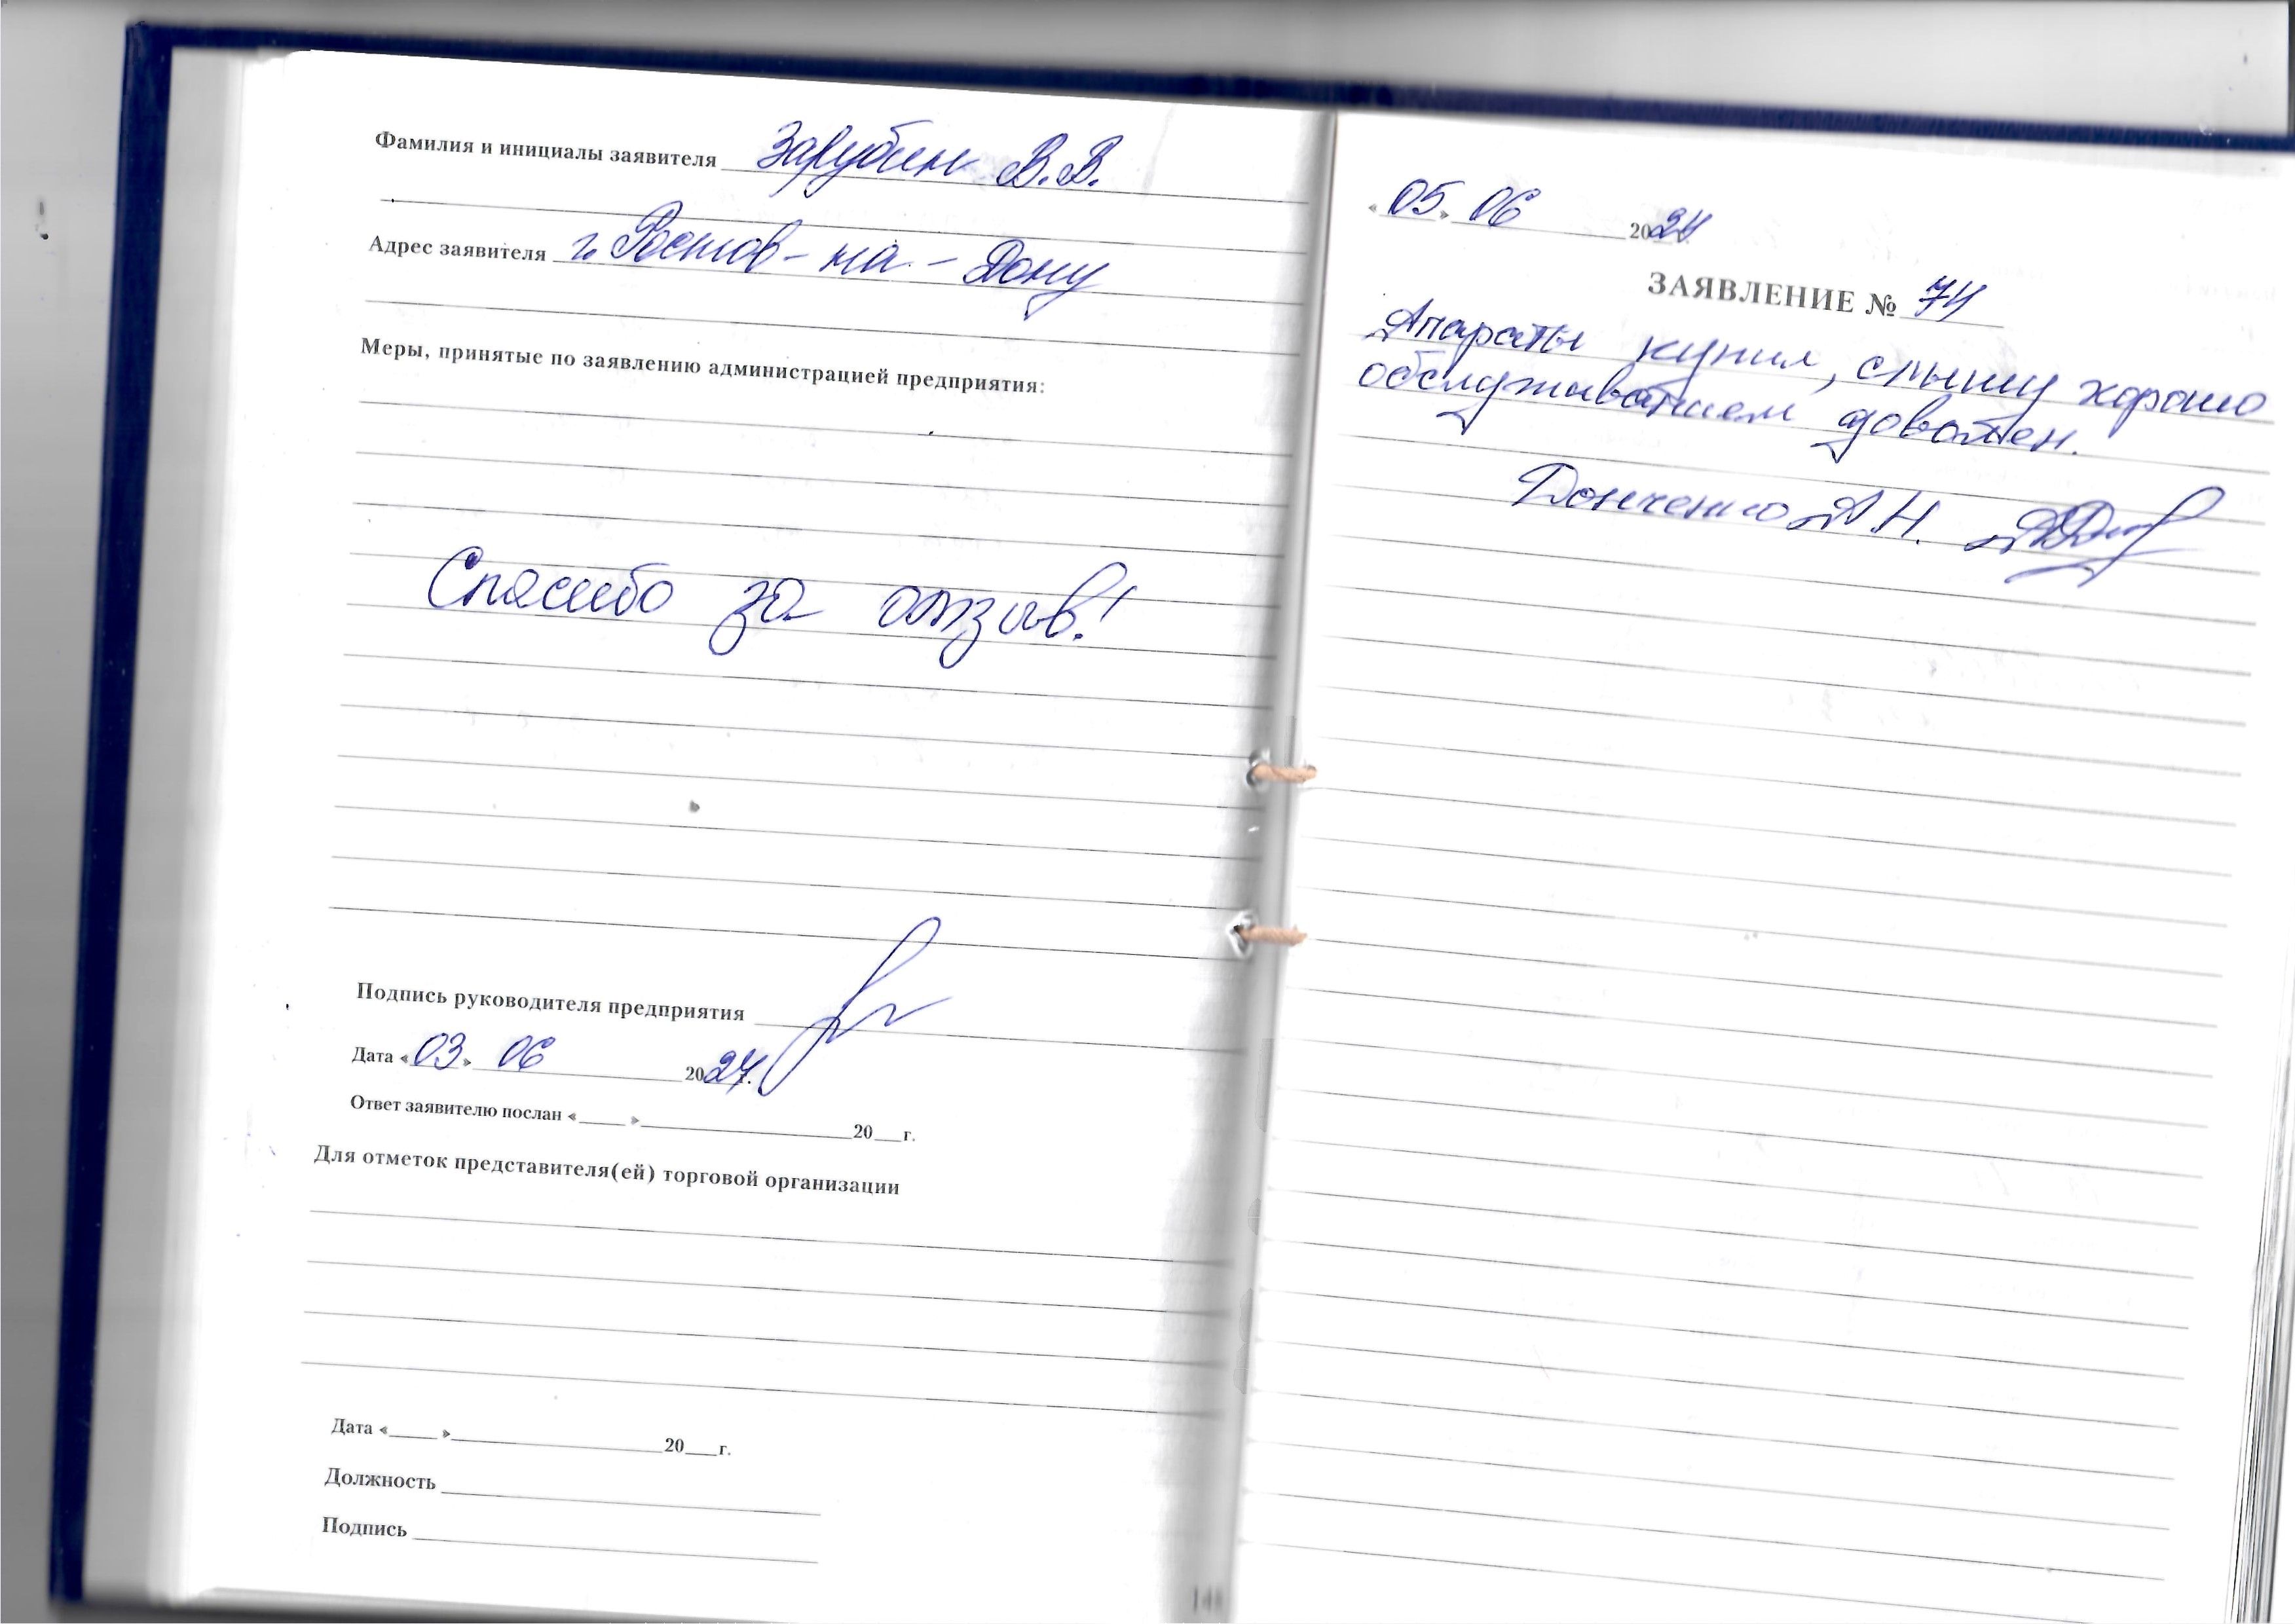 Фамилия и инициалы заявителя Зарубин В.В.
Адрес заявителя г. Ростов-на-Дону
Меры, принятые по заявлению администрацией предприятия:
Спасибо за отзыв!
Подпись руководителя предприятия
Дата «03» 06 2024г.
Ответ заявителю послан «____» ____ 20__г.
Для отметок представителя(ей) торговой организации
Дата «____» ____ 20__г.
Должность
Подпись
«05» 06 2024
ЗАЯВЛЕНИЕ № 74
Апараты купил, слышу хорошо
обслуживанием доволен.
Донченко А.Н.